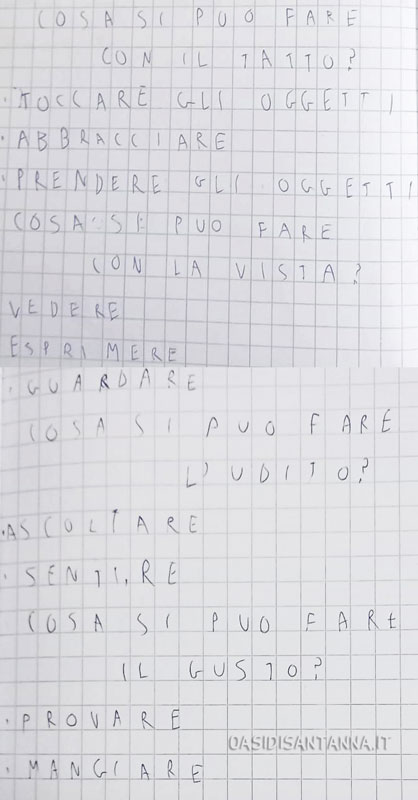 COSA SI PUO FARE
CON IL TATTO?
· TOCCARE GLI OGGETTI
· ABBRACCIARE
· PRENDERE GLI OGGETTI
COSA SI PUO FARE
CON LA VISTA?
VEDERE
ESPRIMERE
· GUARDARE
COSA SI PUO FARE
L'UDITO?
· ASCOLTARE
· SENTIRE
COSA SI PUO FARE
IL GUSTO?
· PROVARE
OASIDISANTANNA.IT
· MANGIARE